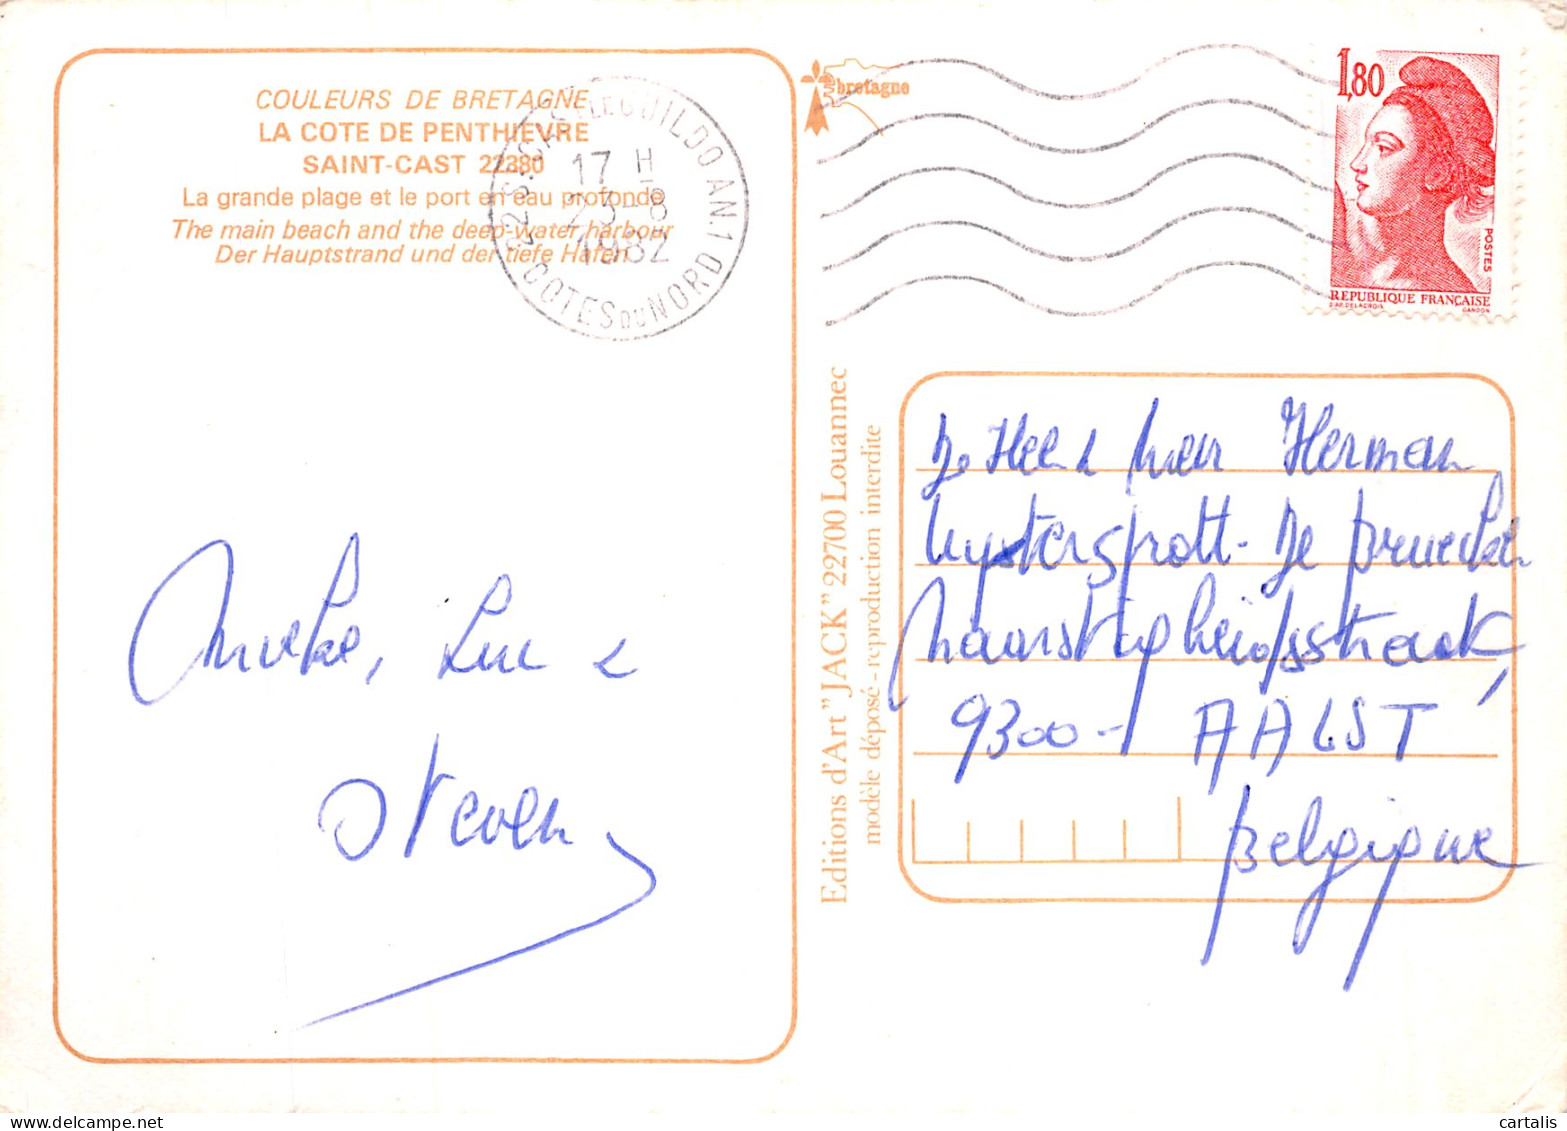 COULEURS DE BRETAGNE
LA COTE DE PENTHIEVRE
SAINT-CAST 22380
La grande plage et le port en eau profonde
The main beach and the deep-water harbour
Der Hauptstrand und der tiefe Hafen
22 ST-CAST LE GUILDO AN.1
17 H
23-8
1982
COTES DU NORD
bretagne
1,80
POSTES
REPUBLIQUE FRANÇAISE
D'AP. DELACROIX
GANDON
Editions d'Art "JACK" 22700 Louannec
modèle déposé - reproduction interdite
Luc
Steven
Herman
9300 - AALST
Belgique
cartalis